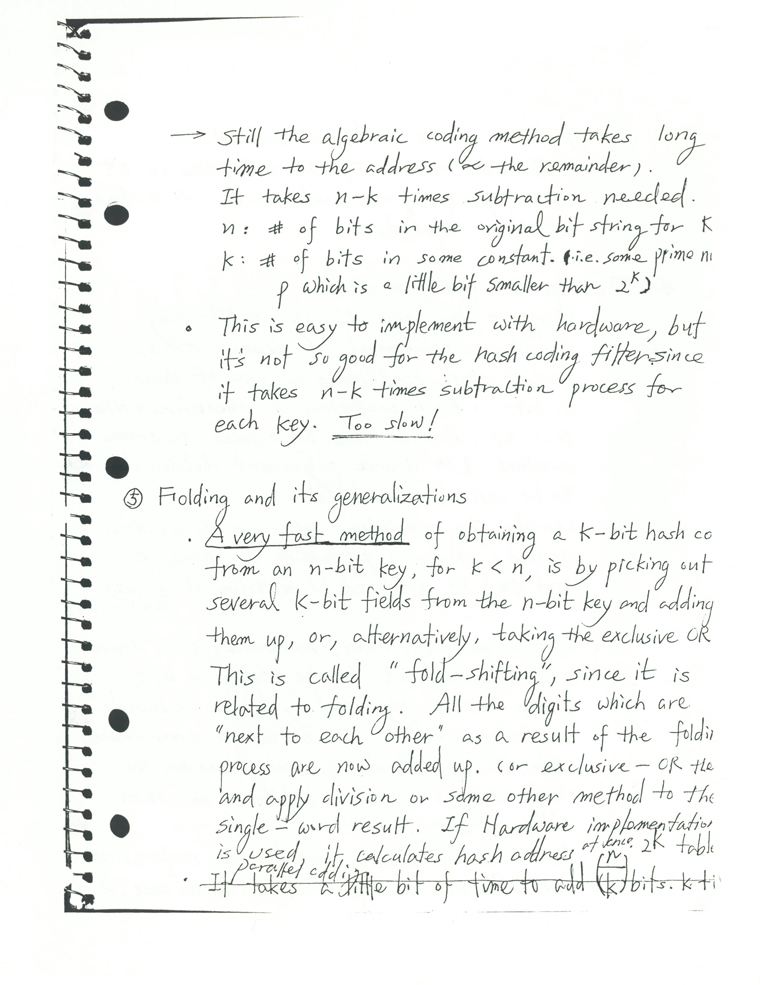 → Still the algebraic coding method takes long
time to the address (∝ the remainder).
It takes n-k times subtraction needed.
n: # of bits in the original bit string for K
k: # of bits in some constant. (i.e. some prime
p which is a little bit smaller than 2^k)
• This is easy to implement with hardware, but
it's not so good for the hash coding filter since
it takes n-k times subtraction process for
each key. Too slow!
⑤ Folding and its generalizations
• A very fast method of obtaining a k-bit hash co
from an n-bit key, for k < n, is by picking out
several k-bit fields from the n-bit key and adding
them up, or, alternatively, taking the exclusive OR
This is called "fold-shifting", since it is
related to folding. All the digits which are
"next to each other" as a result of the foldi
process are now added up. (or exclusive-OR the
and apply division or some other method to the
single-word result. If Hardware implementatio
is used, it calculates hash address at once. 2K tabl
parallel adding
• It takes a little bit of time to add (n/k) bits. k ti